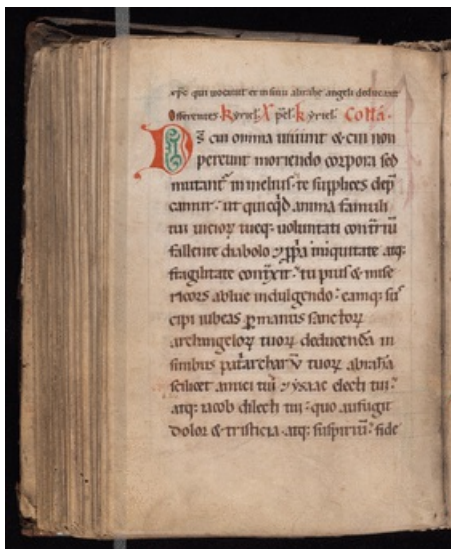 xpc qui uocauit et in sinu abrahe angeli deducant
Offerentes. Kyriel. Xpel. kyriel. Collā.
Ds̄ cui omnia uiuunt & cui non
pereunt moriendo corpora sed
mutant᷑ in melius. te supplices dep̄
camur. ut quicq̇d anima famuli
tui uicioꝝ tueq; uoluntati cont̄riū
fallente diabolo ⁊ ꝓpa iniquitate atq;
fragilitate cont̄xit. tu pius & mise
ricors ablue indulgendo. eamq; sus
cipi iubeas ꝑ manus sanctoꝝ
archangeloꝝ tuoꝝ deducendā in
sinibus patarcharū tuoꝝ abrahā
scilicet amici tui ⁊ ysaac electi tui.
atq; iacob dilecti tui. quo aufugit
dolor & tristicia atq; suspiriū. fide